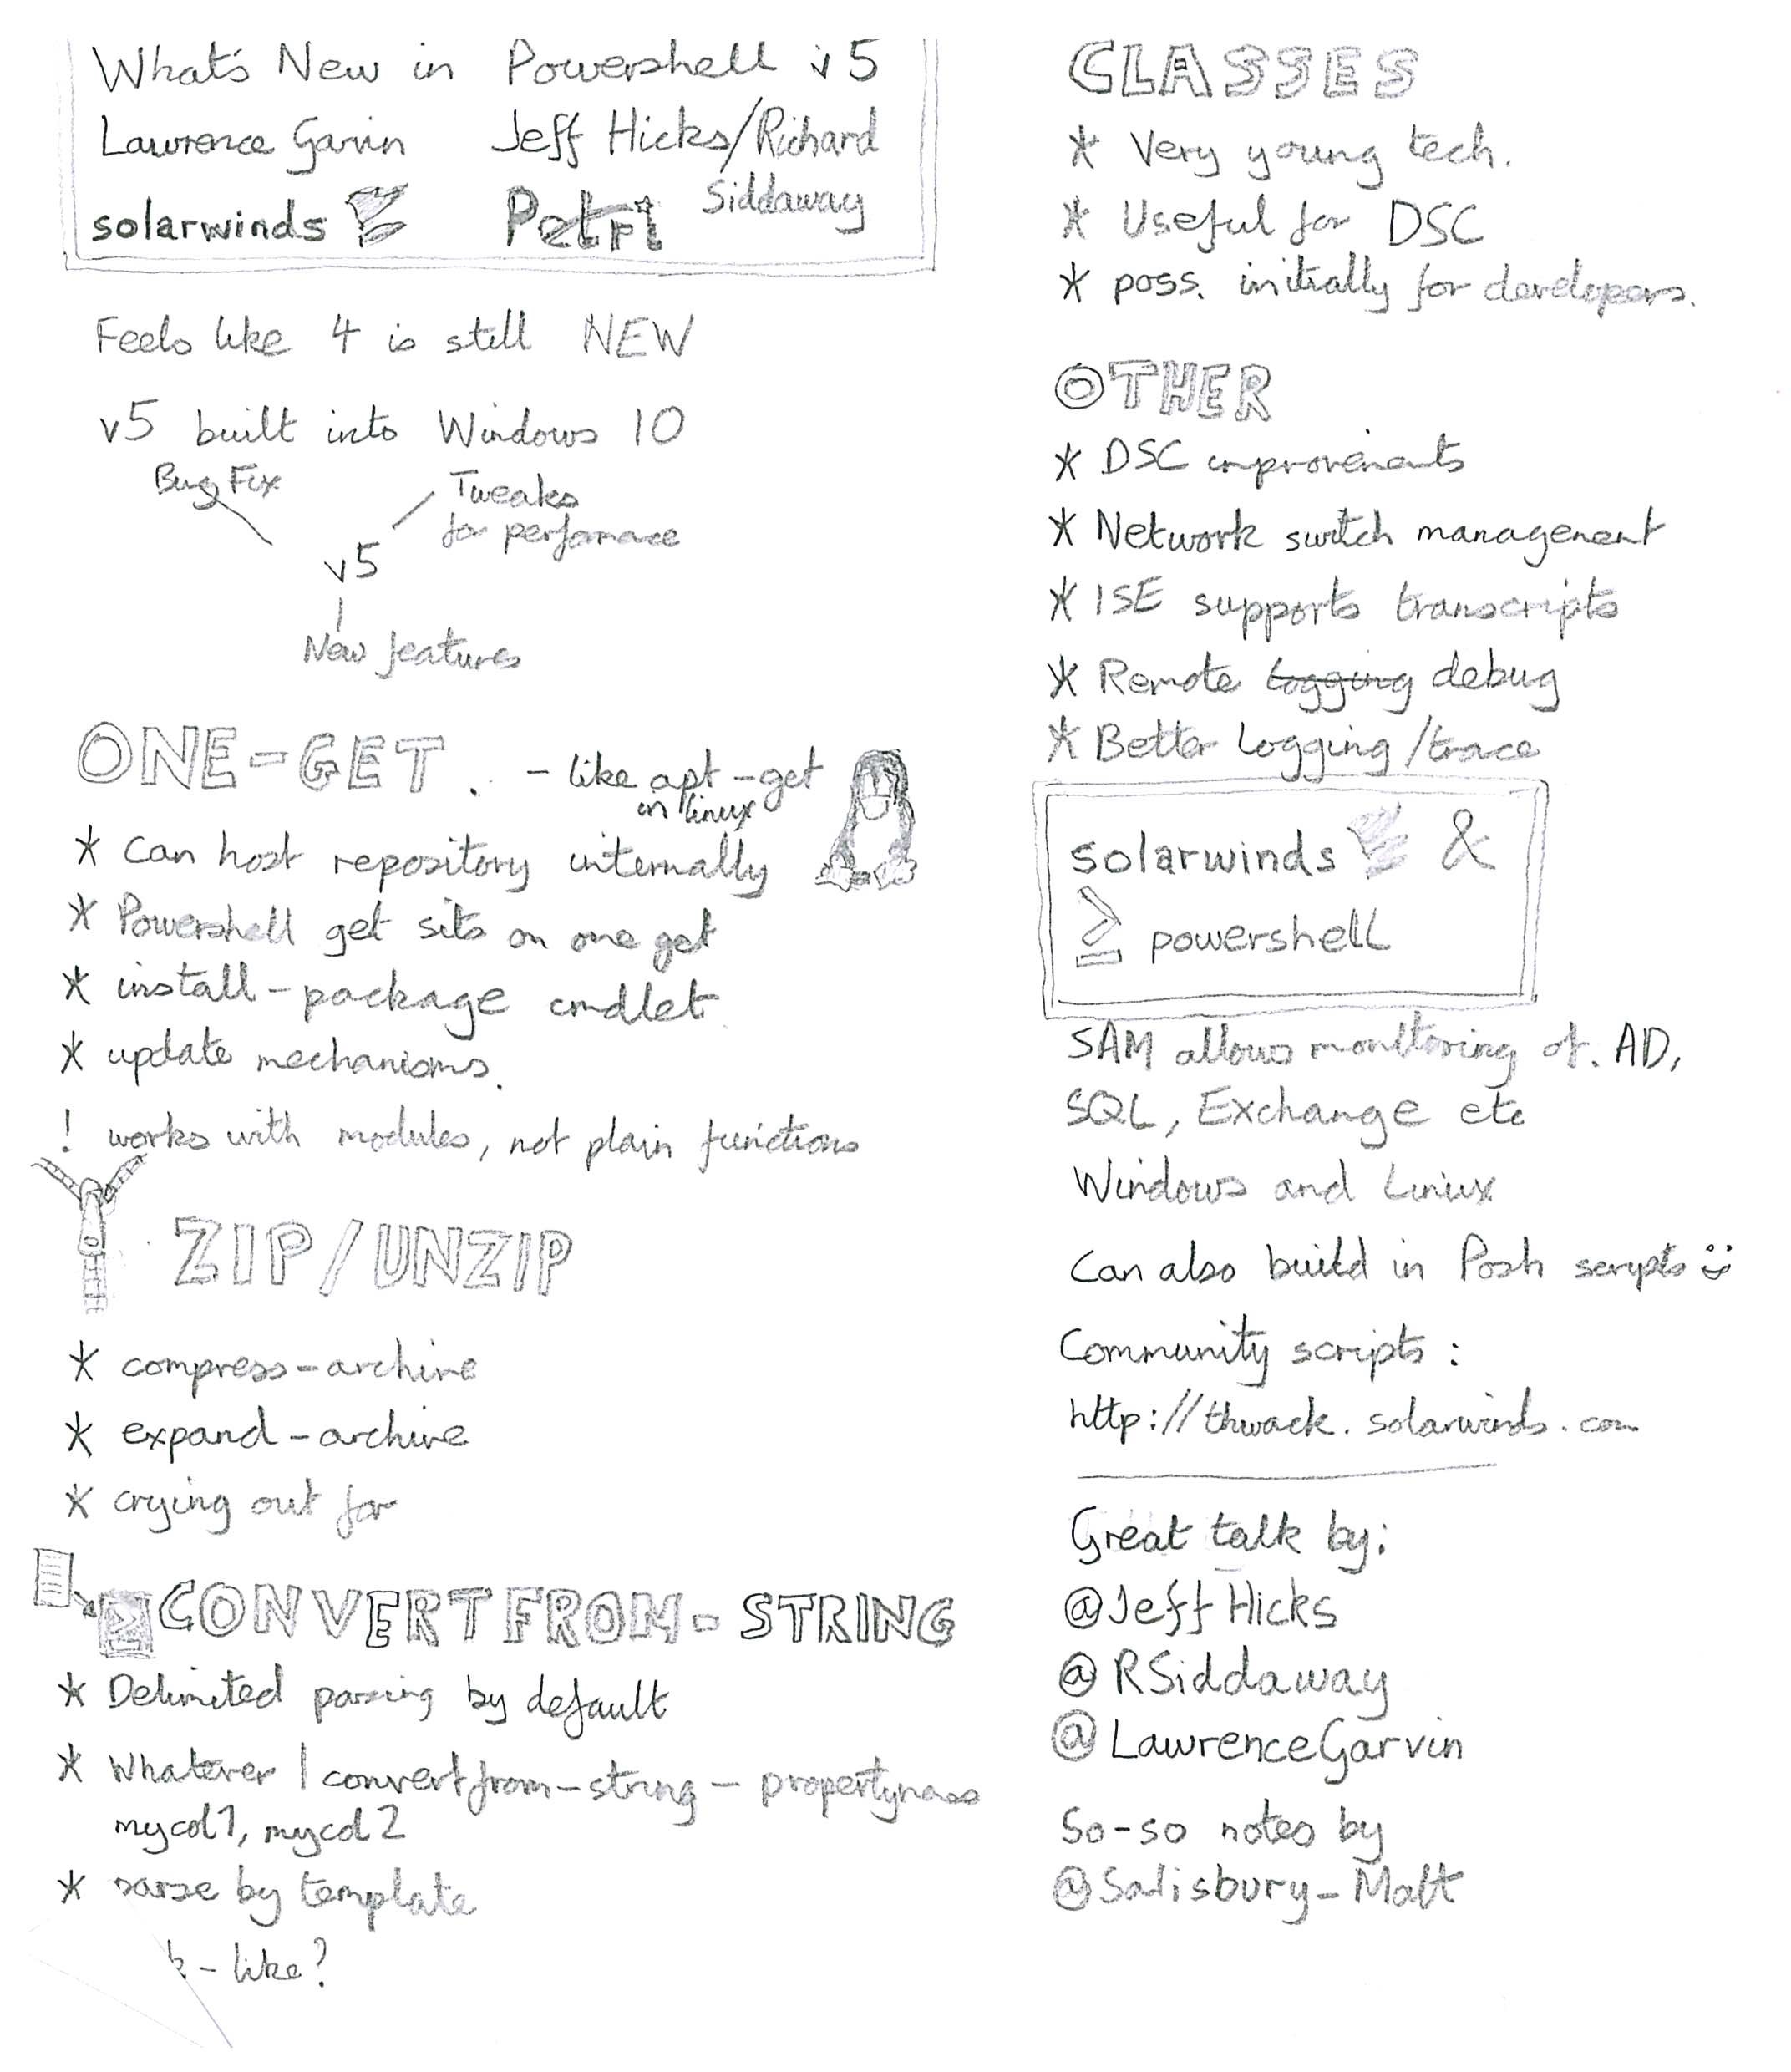 What's New in Powershell v5
Lawrence Garvin Jeff Hicks/Richard
Siddaway
solarwinds Petri
Feels like 4 is still NEW
v5 built into Windows 10
Bug Fix
Tweaks
for performance
v5
New features
ONE-GET. - like apt-get
in linux
* Can host repository internally
* Powershell get sits on one get
* install-package cmdlet
* update mechanisms.
! works with modules, not plain functions
ZIP/UNZIP
* compress-archive
* expand-archive
* crying out for
CONVERTFROM-STRING
* Delimited parsing by default
* Whatever | convertfrom-string -
mycol1, mycol2
* parse by template
- like?
CLASSES
* Very young tech.
* Useful for DSC
* poss. initially for developers.
OTHER
* DSC improvements
* Network switch management
* ISE supports transcripts
* Remote logging debug
* Better Logging/trace
solarwinds &
powershell
SAM allows monitoring of. AD,
SQL, Exchange etc
Windows and Linux
Can also build in Posh scripts
Community scripts :
http://thwack.solarwinds.com
Great talk by:
@JeffHicks
@RSiddaway
@LawrenceGarvin
So-so notes by
@Salisbury_Matt